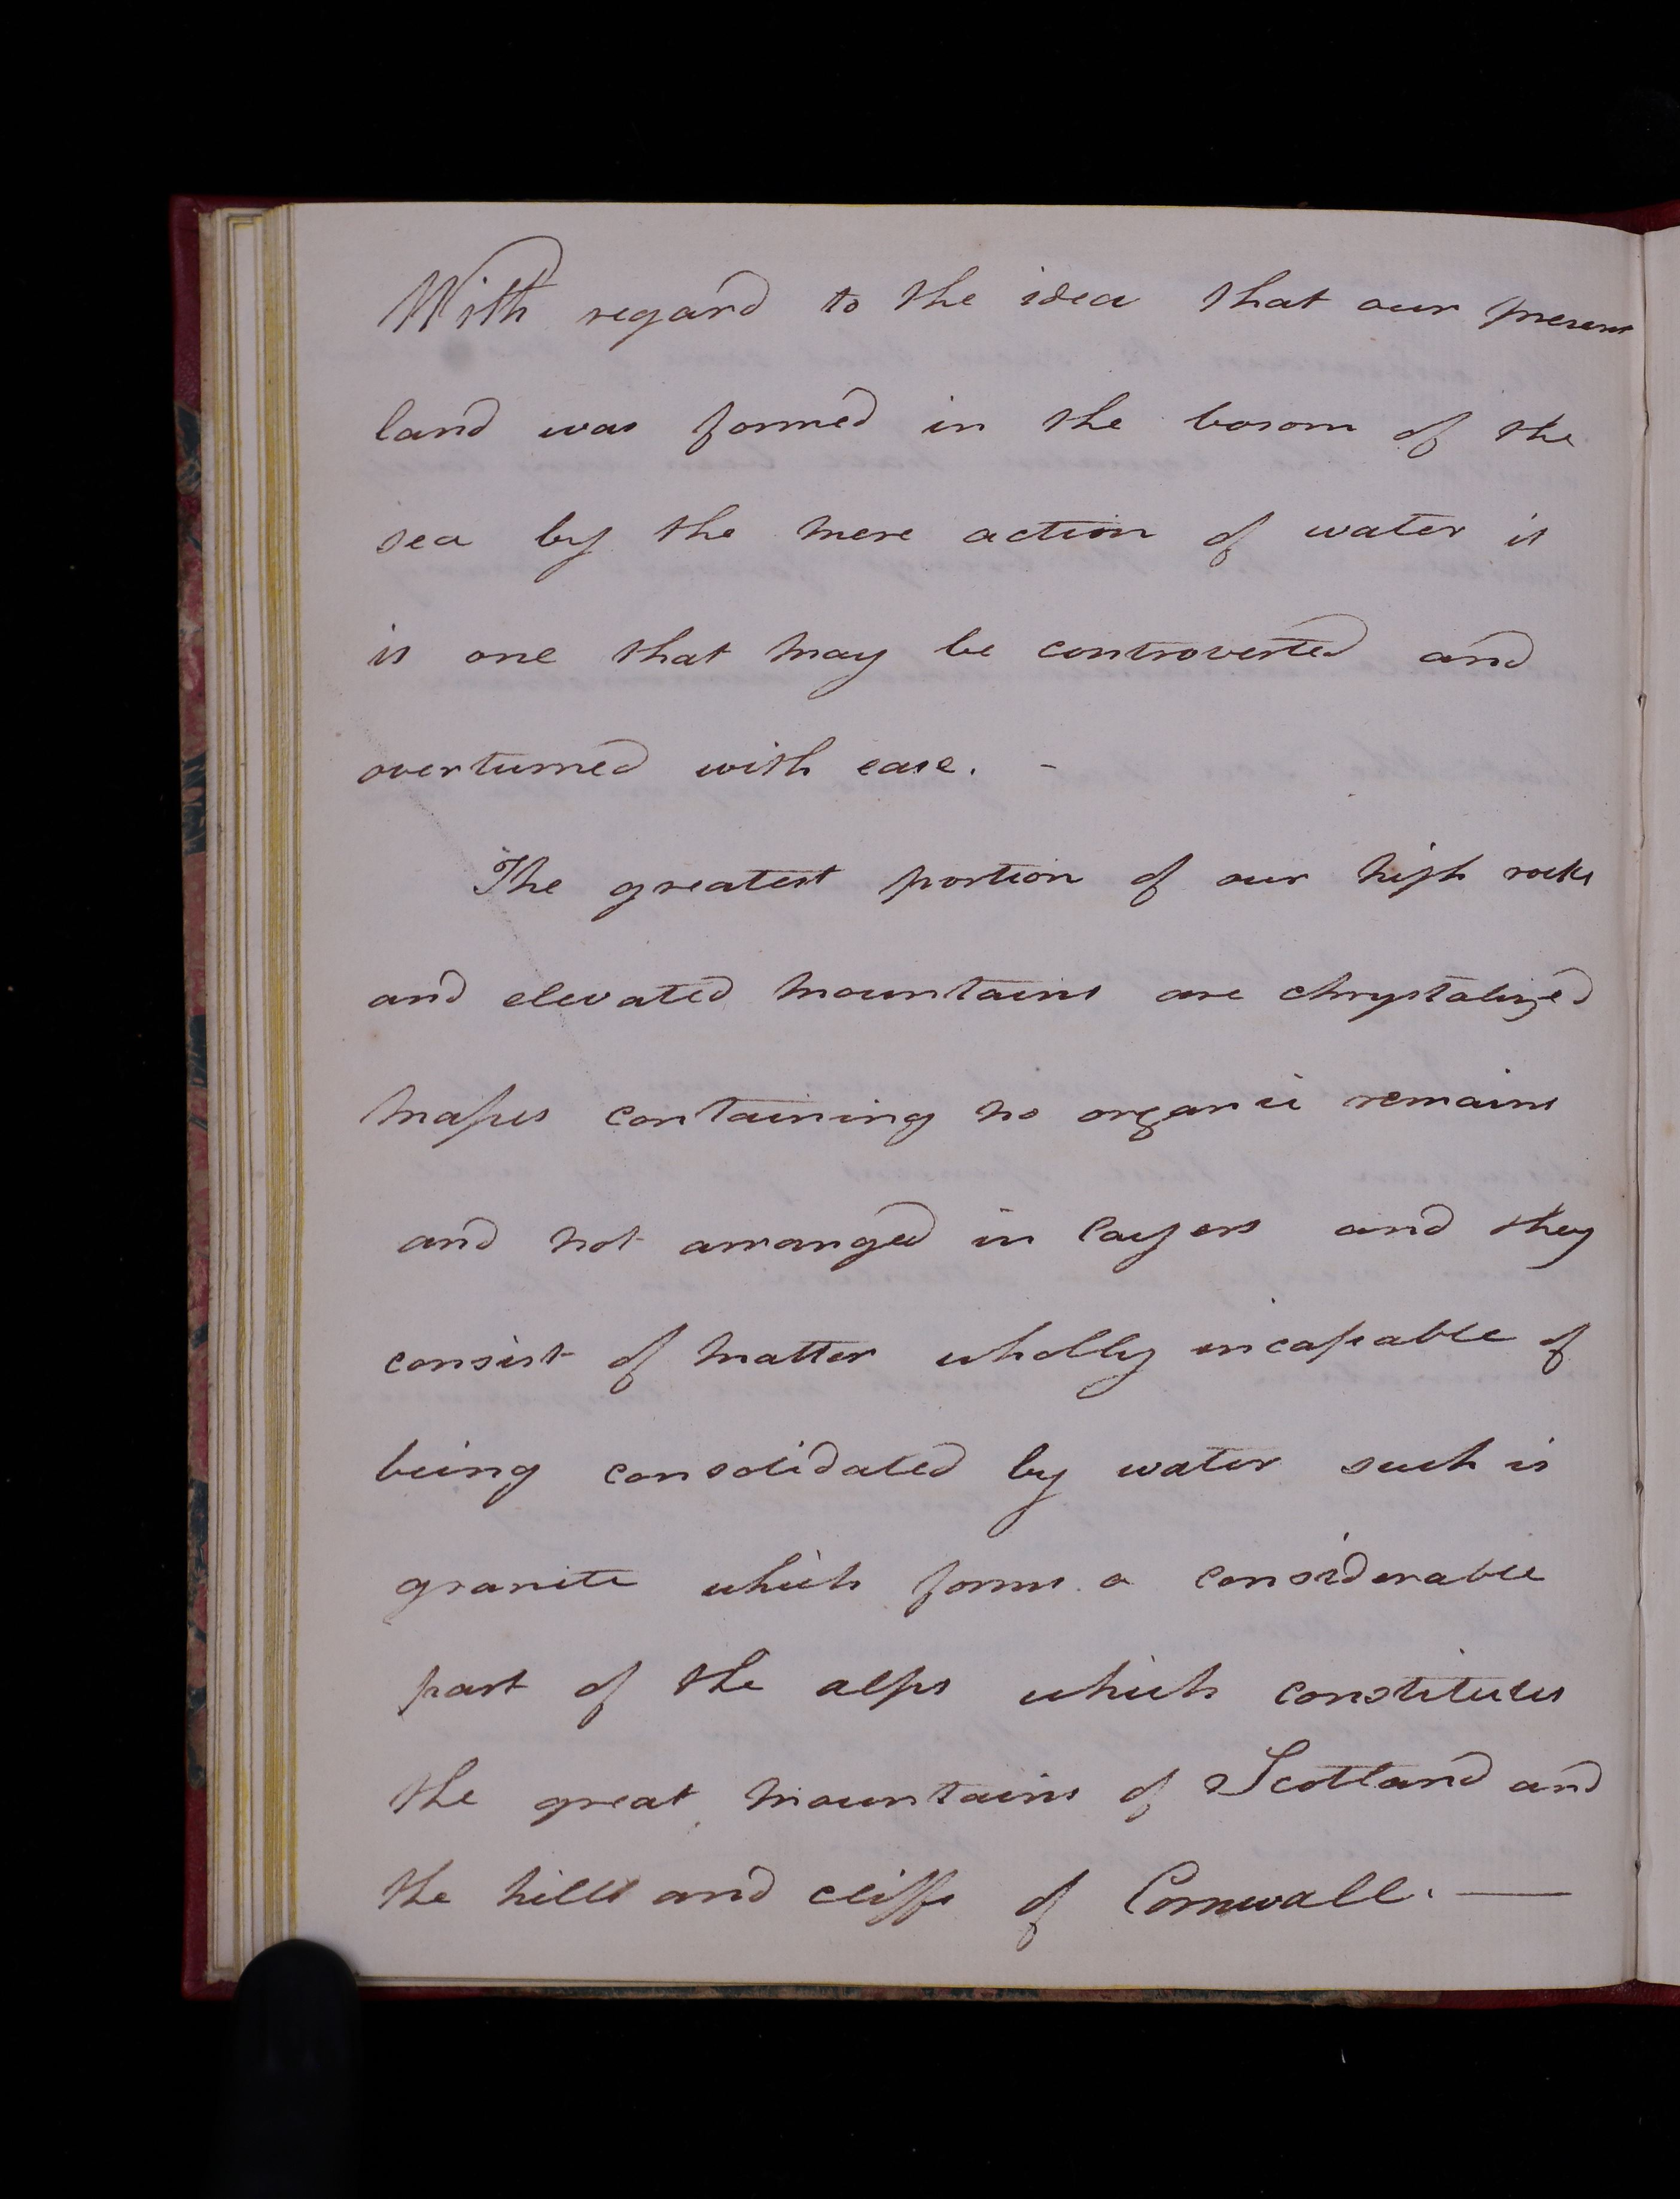 With regard to the idea that our present
land was formed in the bosom of the
sea by the mere action of water is
is one that may be controverted and
overturned with ease. -
The greatest portion of our high rocks
and elevated mountains are chrystalized
masses containing no organic remains
and not arranged in layers and they
consist of matter wholly incapable of
being consolidated by water such is
granite which forms a considerable
part of the alps which constitutes
the great mountains of Scotland and
the hills and cliffs of Cornwall. —